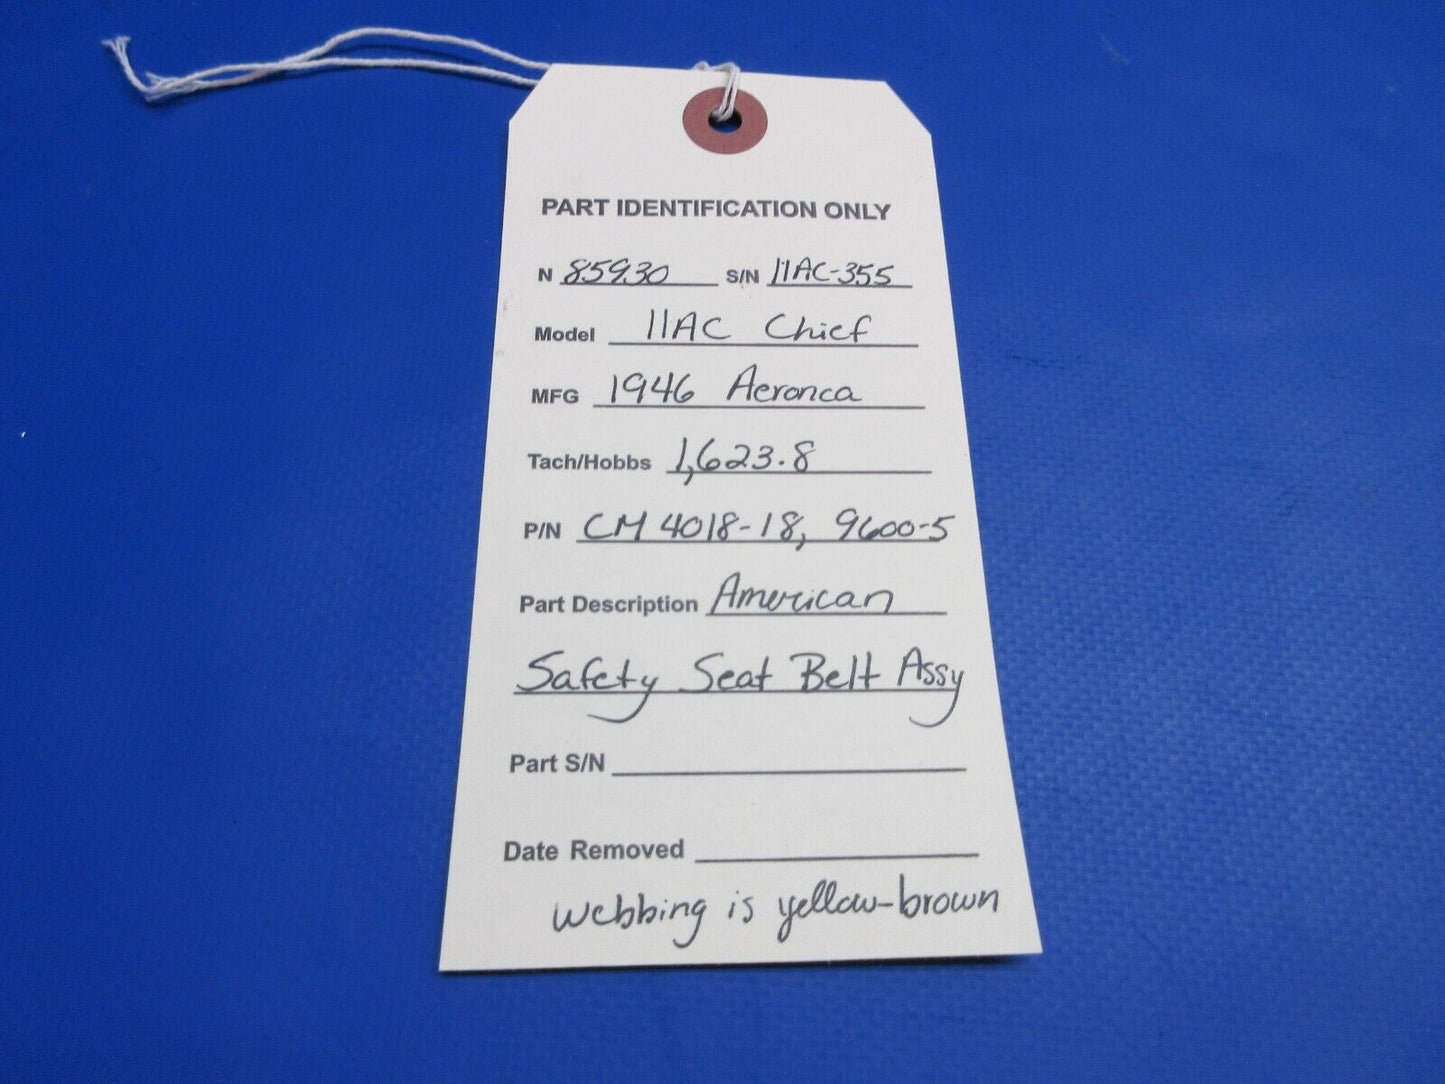 PART IDENTIFICATION ONLY
N 85930 S/N 11AC-355
Model 11AC Chief
MFG 1946 Aeronca
Tach/Hobbs 1,623.8
P/N CM4018-18, 9600-5
Part Description American
Safety Seat Belt Assy
Part S/N
Date Removed
webbing is yellow-brown